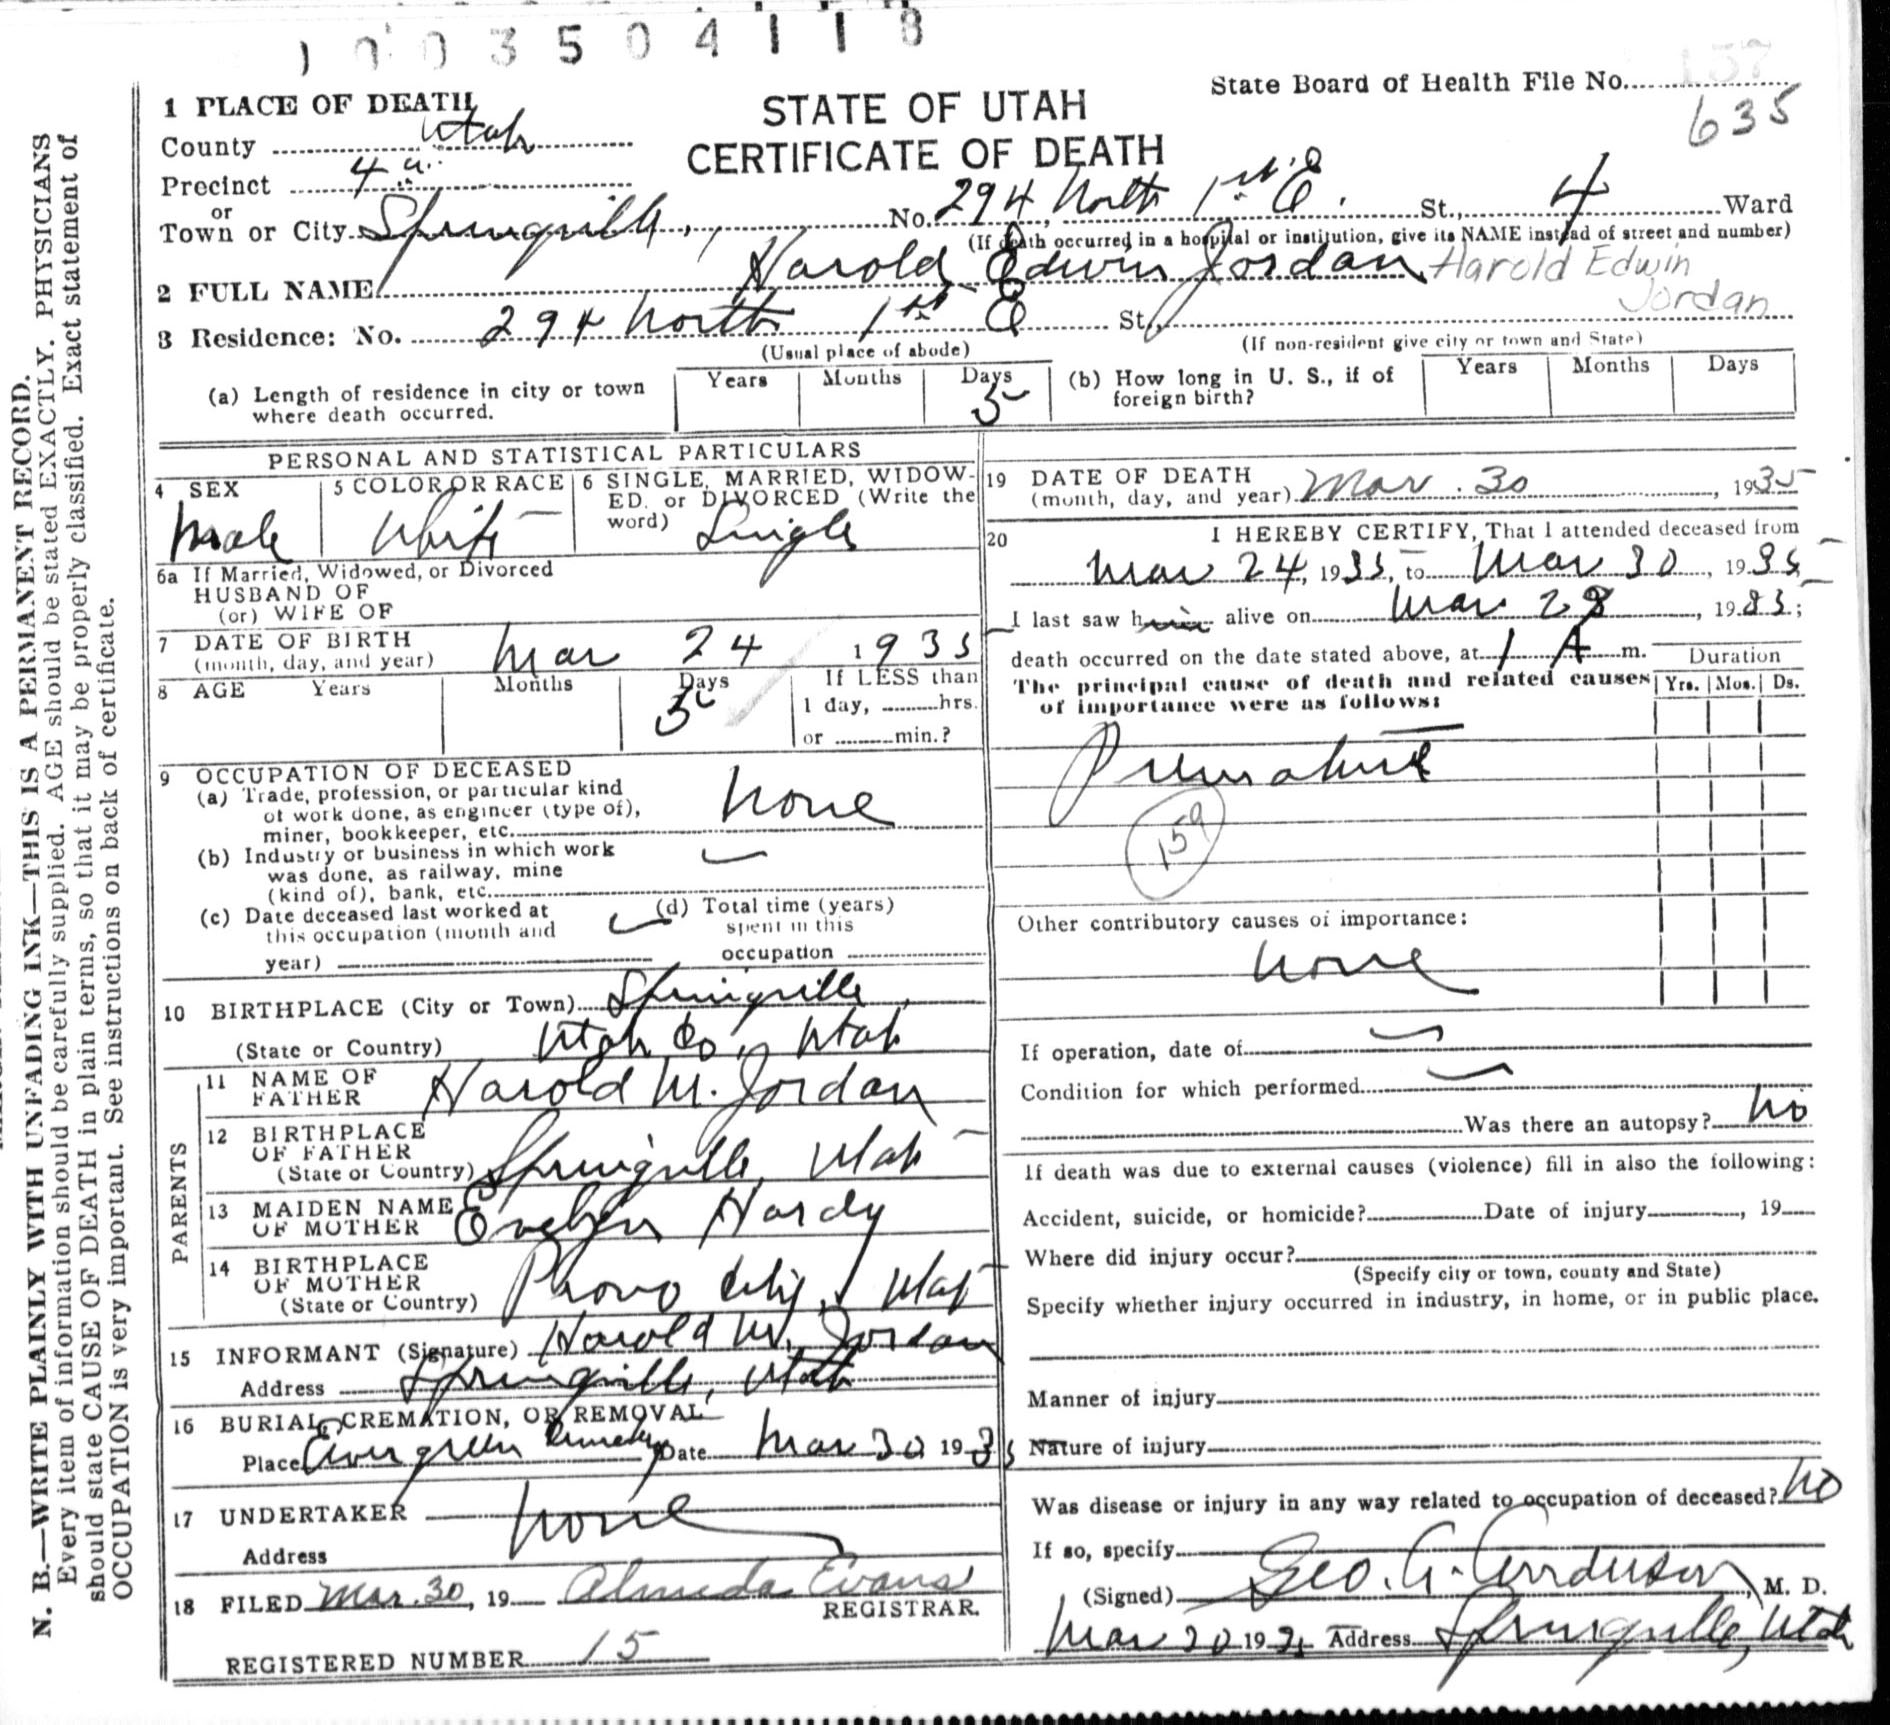 1 0 0 3 5 0 4 1 1 8
State Board of Health File No.
635
STATE OF UTAH
CERTIFICATE OF DEATH
1 PLACE OF DEATH
County Utah
Precinct 4
or
Town or City Springville, No. 294 North 1st E. St., 4 Ward
(If death occurred in a hospital or institution, give its NAME instead of street and number)
2 FULL NAME Harold Edwin Jordan Harold Edwin
Jordan
3 Residence: No. 294 North 1st E St.,
(Usual place of abode) (If non-resident give city or town and State)
(a) Length of residence in city or town
where death occurred.
Years Months Days
5
(b) How long in U. S., if of
foreign birth?
Years Months Days
PERSONAL AND STATISTICAL PARTICULARS
4 SEX
Male
5 COLOR OR RACE
White
6 SINGLE, MARRIED, WIDOW-
ED. or DIVORCED (Write the
word) Single
6a If Married, Widowed, or Divorced
HUSBAND OF
(or) WIFE OF
7 DATE OF BIRTH
(month, day, and year) Mar 24 1935
8 AGE Years Months Days
5
If LESS than
1 day, hrs.
or min.?
9 OCCUPATION OF DECEASED
(a) Trade, profession, or particular kind
of work done, as engineer (type of),
miner, bookkeeper, etc. None
(b) Industry or business in which work
was done, as railway, mine
(kind of), bank, etc.
(c) Date deceased last worked at
this occupation (month and
year)
(d) Total time (years)
spent in this
occupation
10 BIRTHPLACE (City or Town) Springville,
(State or Country) Utah Co, Utah
PARENTS
11 NAME OF
FATHER Harold M. Jordan
12 BIRTHPLACE
OF FATHER
(State or Country) Springville, Utah
13 MAIDEN NAME
OF MOTHER Evelyn Hardy
14 BIRTHPLACE
OF MOTHER
(State or Country) Provo City, Utah
15 INFORMANT (Signature) Harold M. Jordan
Address Springville, Utah
16 BURIAL, CREMATION, OR REMOVAL
Place Evergreen Cemetery Date Mar 30 1935
17 UNDERTAKER none
Address
18 FILED Mar. 30, 19 Almeda Evans
REGISTRAR.
REGISTERED NUMBER 15
19 DATE OF DEATH
(month, day, and year) Mar. 30, 1935
20 I HEREBY CERTIFY, That I attended deceased from
Mar 24, 1935, to Mar 30, 1935,
I last saw him alive on Mar 28, 1935;
death occurred on the date stated above, at 1 A m.
The principal cause of death and related causes
of importance were as follows:
Duration
Yrs. Mos. Ds.
Premature
159
Other contributory causes of importance:
none
If operation, date of
Condition for which performed
Was there an autopsy? no
If death was due to external causes (violence) fill in also the following:
Accident, suicide, or homicide? Date of injury , 19
Where did injury occur?
(Specify city or town, county and State)
Specify whether injury occurred in industry, in home, or in public place.
Manner of injury
Nature of injury
Was disease or injury in any way related to occupation of deceased? no
If so, specify
(Signed) Geo. A. Anderson, M. D.
Mar 30 19 Address Springville, Utah
N. B.—WRITE PLAINLY WITH UNFADING INK—THIS IS A PERMANENT RECORD.
Every item of information should be carefully supplied. AGE should be stated EXACTLY. PHYSICIANS
should state CAUSE OF DEATH in plain terms, so that it may be properly classified. Exact statement of
OCCUPATION is very important. See instructions on back of certificate.